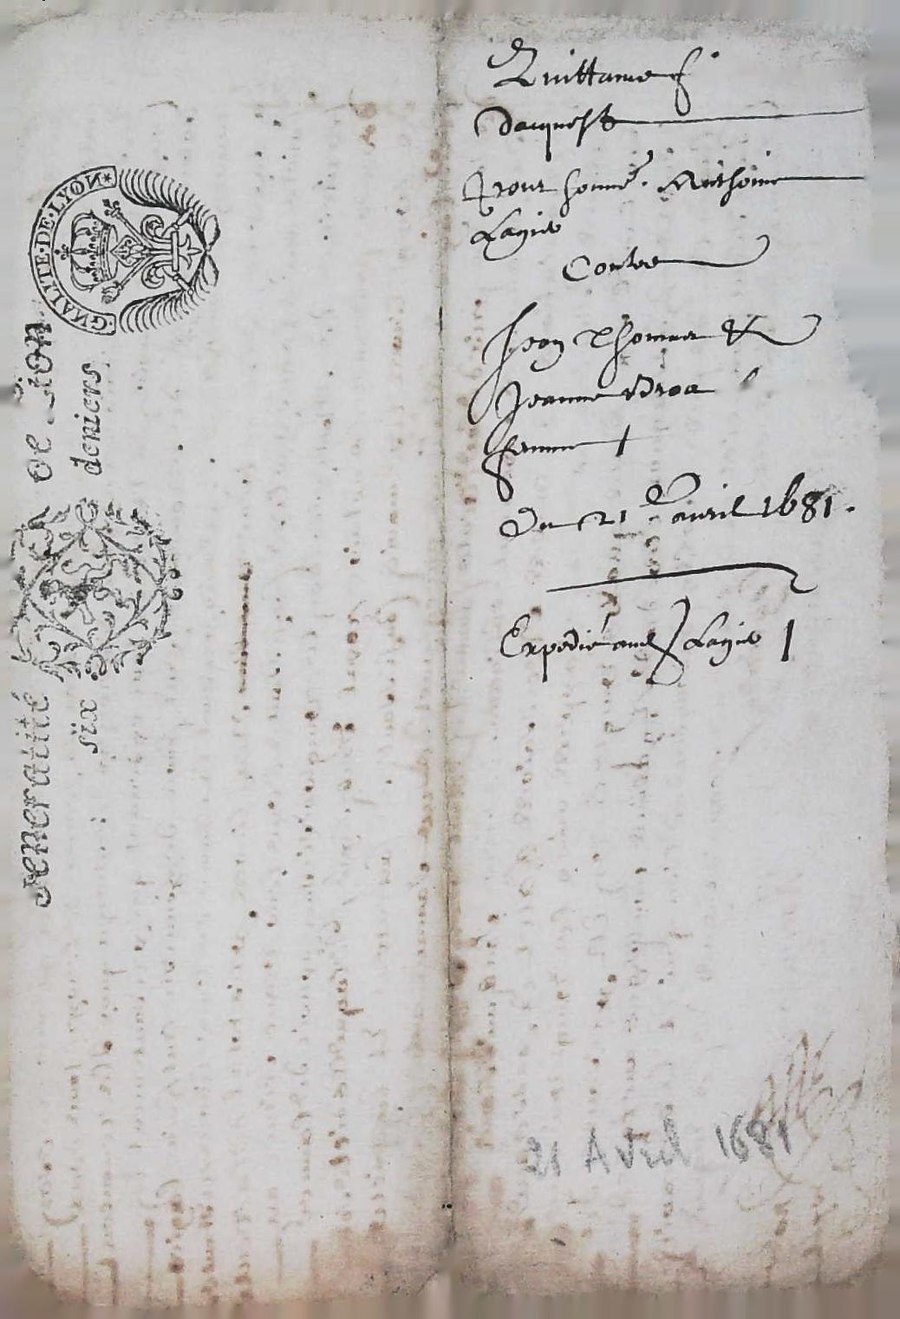 GNALITE·DE·LYON*
Generalité de Lion
six deniers
Quittance
dacquest
pour honne. Anthoine
Lagier
Contre
Jean Thomas &
Jeanne
femme
Du 21e avril 1681.
Expedié aud Lagier
21 Avril 1681